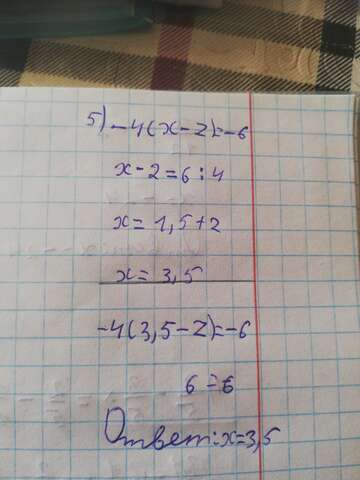 5) -4(x-2)=-6
x-2=6:4
x=1,5+2
x=3,5
-4(3,5-2)=-6
6=6
Ответ:x=3,5